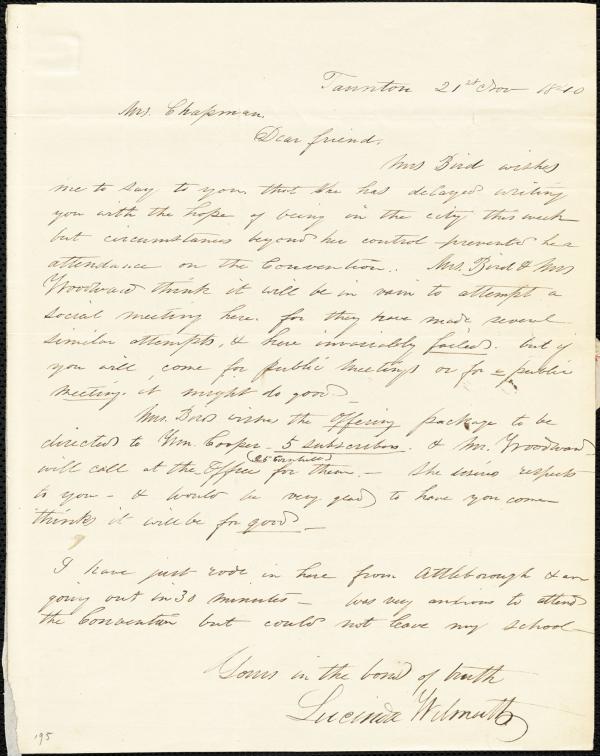 Taunton 21st Nov 1840
Mrs. Chapman.
Dear friend.
Mrs Bird wishes
me to say to you, that she has delayed writing
you with the hope of being in the city this week
but circumstances beyond her control prevented her
attendance on the Convention. Mrs. Bird & Mrs
Woodward think it will be in vain to attempt a
social meeting here. for they have made several
similar attempts, & have invariably failed. but if
you will come for public meetings or for a public
meeting. it might do good
Mrs. Bird wishes the Offering package to be
directed to Wm. Cooper - 5 subscribers. & Mr. Woodward
(25 Cornhill)
will call at the Office for them. - She sends respects
to you - & would be very glad to have you come
thinks it will be for good -
I have just rode in here from Attleborough & am
going out in 30 minutes - was very anxious to attend
the Convention but could not leave my school -
Yours in the bond of truth
Lucinda Wilmarth
195